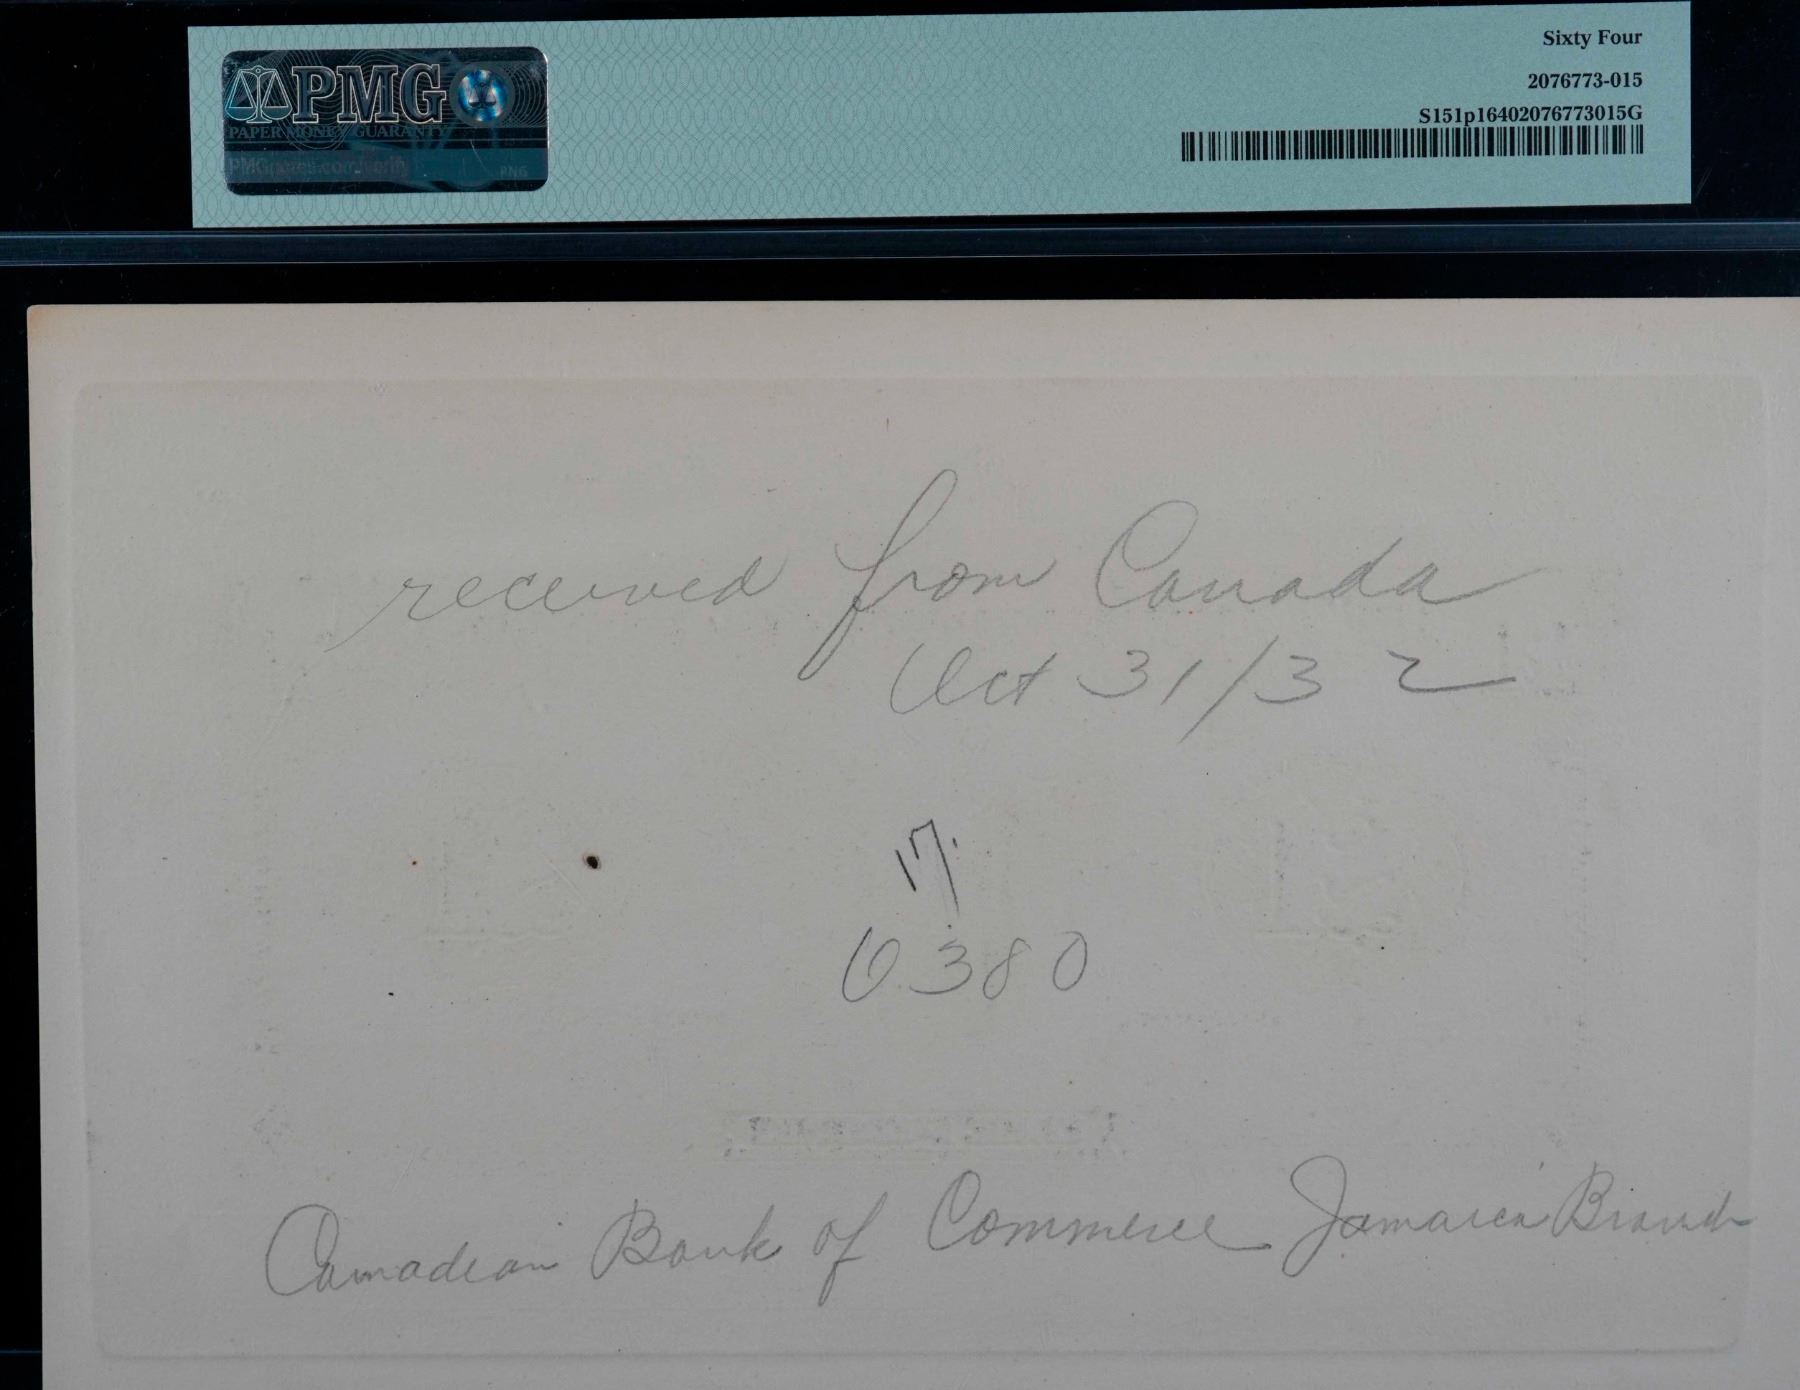 Sixty Four
2076773-015
S151p16402076773015G
PMG
PAPER MONEY GUARANTY
PMGnotes.com/verify
PNG
received from Canada
Oct 31/32
17.
0380
Canadian Bank of Commerce Jamaica Branch